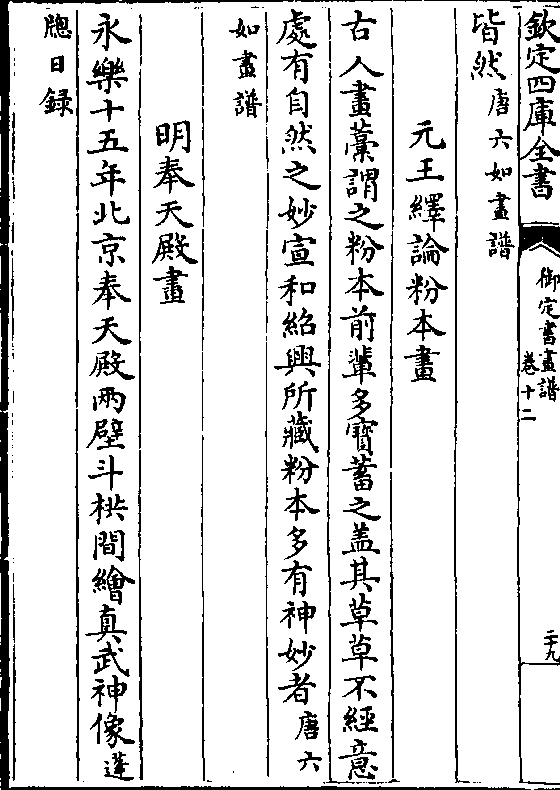 欽定四庫全書
御定書畫譜
卷十二
二十九
皆然唐六如畫譜
元王繹論粉本畫
古人畫藁謂之粉本前輩多寶蓄之盖其草草不經意
處有自然之妙宣和紹興所藏粉本多有神妙者唐六
如畫譜
明奉天殿畫
永樂十五年北京奉天殿兩壁斗栱間繪真武神像蓬
牕日録